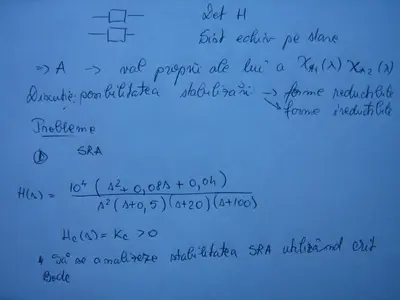 Det H
Sist echiv pe stare
⇒ A → val proprii ale lui a χA1(λ) χA2(λ)
Discuție: posibilitatea stabilizării → forme reductibile
→ forme ireductibile
Probleme
① SRA
H(s) = 10⁴ (s² + 0,08s + 0,04) / s² (s+0,5)(s+20)(s+100)
Hc(s) = Kc > 0
să se analizeze stabilitatea SRA utilizând crit
Bode